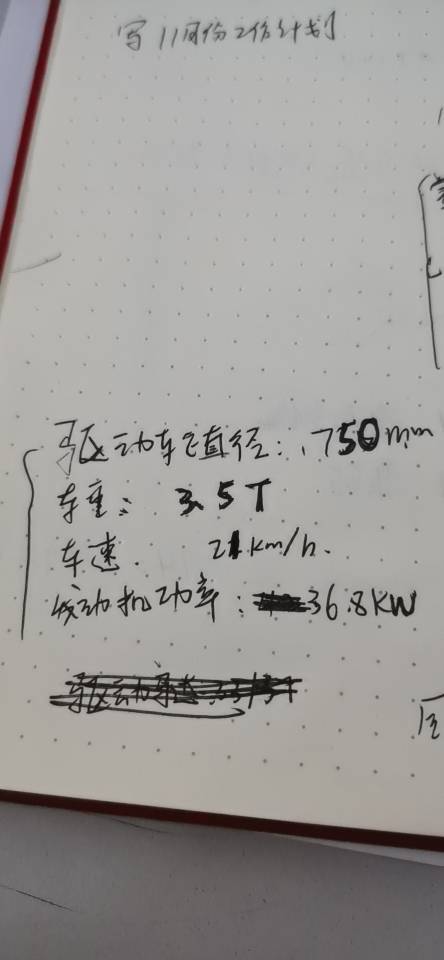 写11月份工作计划
驱动车轮直径：750mm
车重：3.5T
车速 21km/h.
发动机功率：36.8KW